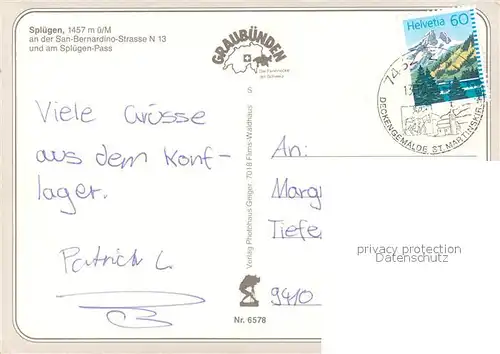 Splügen, 1457 m ü/M
an der San-Bernardino-Strasse N 13
und am Splügen-Pass
GRAUBÜNDEN
Die Ferienecke
der Schweiz
Helvetia 60
DECKENGEMÄLDE ST. MARTINSKIR
S
Viele Grüsse
aus dem Konf-
lager.
Patrick L.
Verlag Photohaus Geiger, 7018 Flims-Waldhaus
An:
Marg
Tiefe
9410
privacy protection
Datenschutz
Nr. 6578